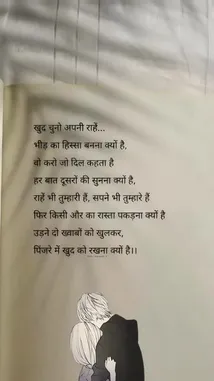 खुद चुनो अपनी राहें...
भीड़ का हिस्सा बनना क्यों है,
वो करो जो दिल कहता है
हर बात दूसरों की सुनना क्यों है,
राहें भी तुम्हारी हैं, सपने भी तुम्हारे हैं
फिर किसी और का रास्ता पकड़ना क्यों है
उड़ने दो ख्वाबों को खुलकर,
पिंजरे में खुद को रखना क्यों है।।